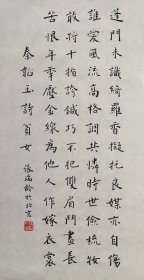 蓬門未識綺羅香擬托良媒亦自傷
誰愛風流高格調共憐時世儉梳妝
敢將十指誇鍼巧不把雙眉鬥畫長
苦恨年年壓金線為他人作嫁衣裳
秦韜玉詩貧女 張瑞齡於北京